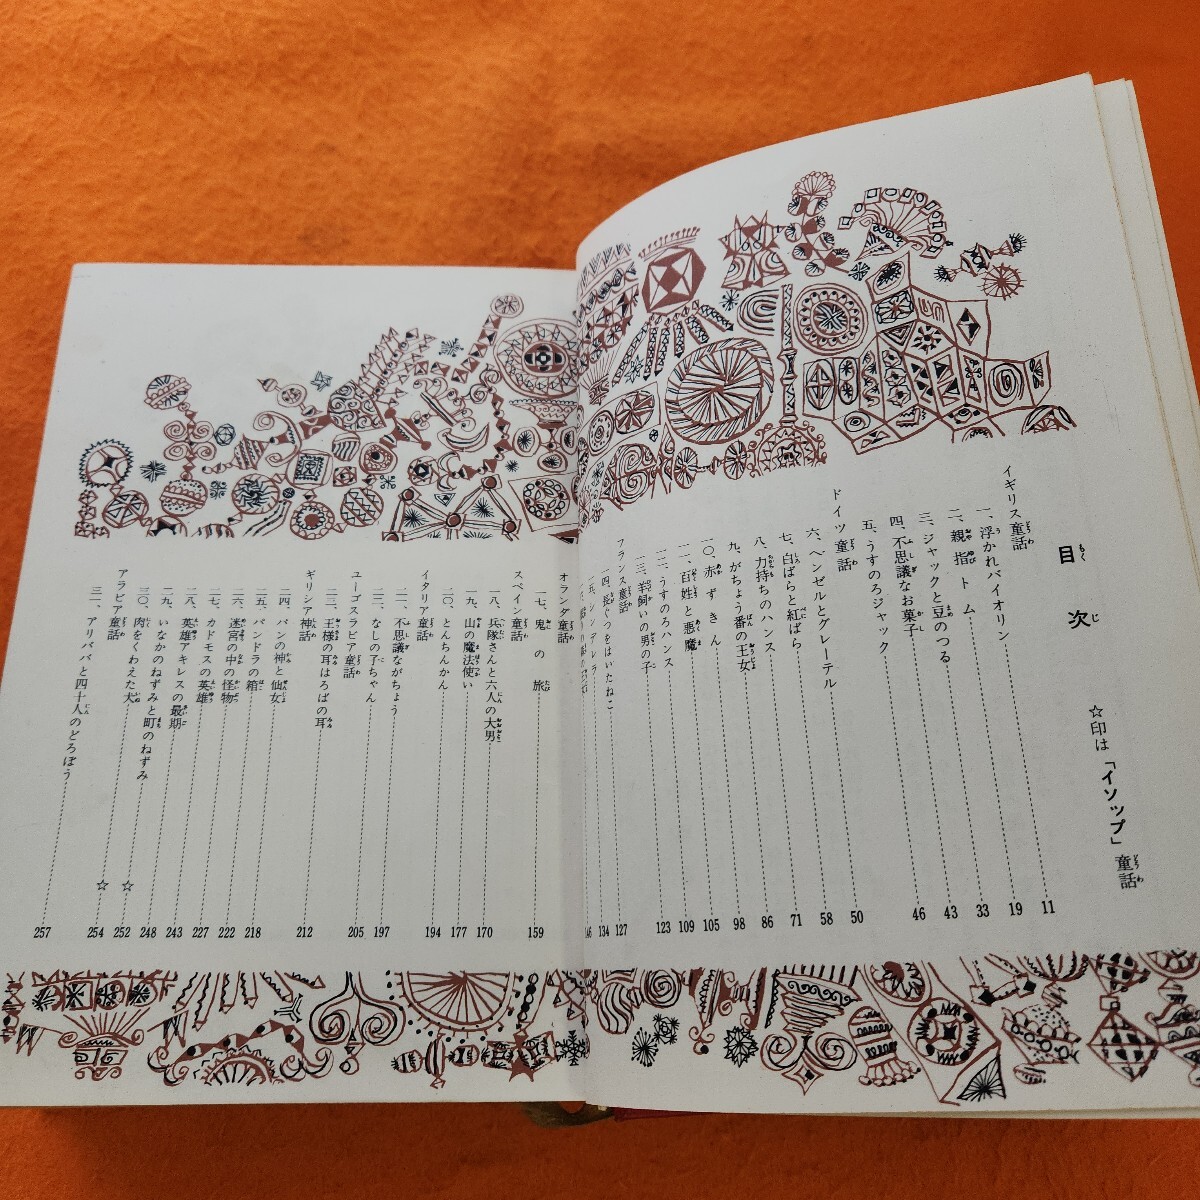 目次
☆印は「イソップ」童話
イギリス童話
一、浮かれバイオリン 11
二、親指トム 19
三、ジャックと豆のつる 33
四、不思議なお菓子 43
五、うすのろジャック 46
ドイツ童話
六、ヘンゼルとグレーテル 50
七、白ばらと紅ばら 58
八、力持ちのハンス 71
九、がちょう番の王女 86
一〇、赤ずきん 98
一一、百姓と悪魔 105
一二、うすのろハンス 109
一三、羊飼いの男の子 123
フランス童話
一四、長ぐつをはいたねこ 127
一五、シンデレラ 134
一六、 146
オランダ童話
一七、鬼の旅 159
スペイン童話
一八、兵隊さんと六人の大男 170
一九、山の魔法使い 177
二〇、とんちんかん 194
イタリア童話
二一、不思議ながちょう 197
二二、なしの子ちゃん 205
ユーゴスラビア童話
二三、王様の耳はろばの耳 212
ギリシア神話
二四、パンの神と仙女 218
二五、パンドラの箱 222
二六、迷宮の中の怪物 227
二七、カドモスの英雄 243
二八、英雄アキレスの最期 248
二九、いなかのねずみと町のねずみ ☆ 252
三〇、肉をくわえた犬 ☆ 254
アラビア童話
三一、アリババと四十人のどろぼう 257